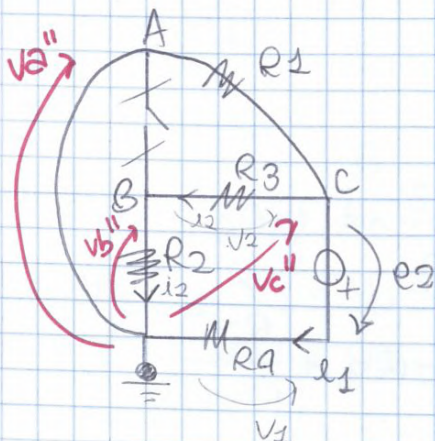 A
va"
R1
B
R3
C
i2
v2
vb"
R2
i2
vc"
+
e2
R4
i1
v1